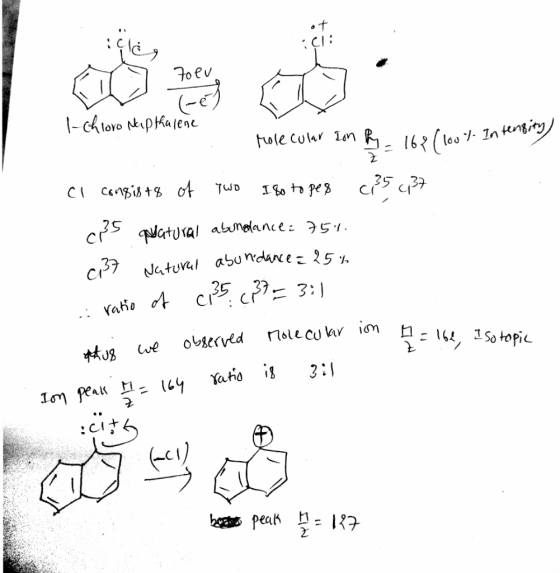 :C̈l
70 ev
(-e⁻)
1-chloro Napthalene
:Cl:
Molecular Ion M/Z = 162 (100% Intensity)
Cl consists of Two Isotopes Cl³⁵, Cl³⁷
Cl³⁵ Natural abundance = 75%.
Cl³⁷ Natural abundance = 25%
∴ ratio of Cl³⁵ : Cl³⁷ = 3:1
thus we observed Molecular ion M/Z = 162, Isotopic
Ion peak M/Z = 164 ratio is 3:1
:C̈l
(-Cl)
+
peak M/Z = 127